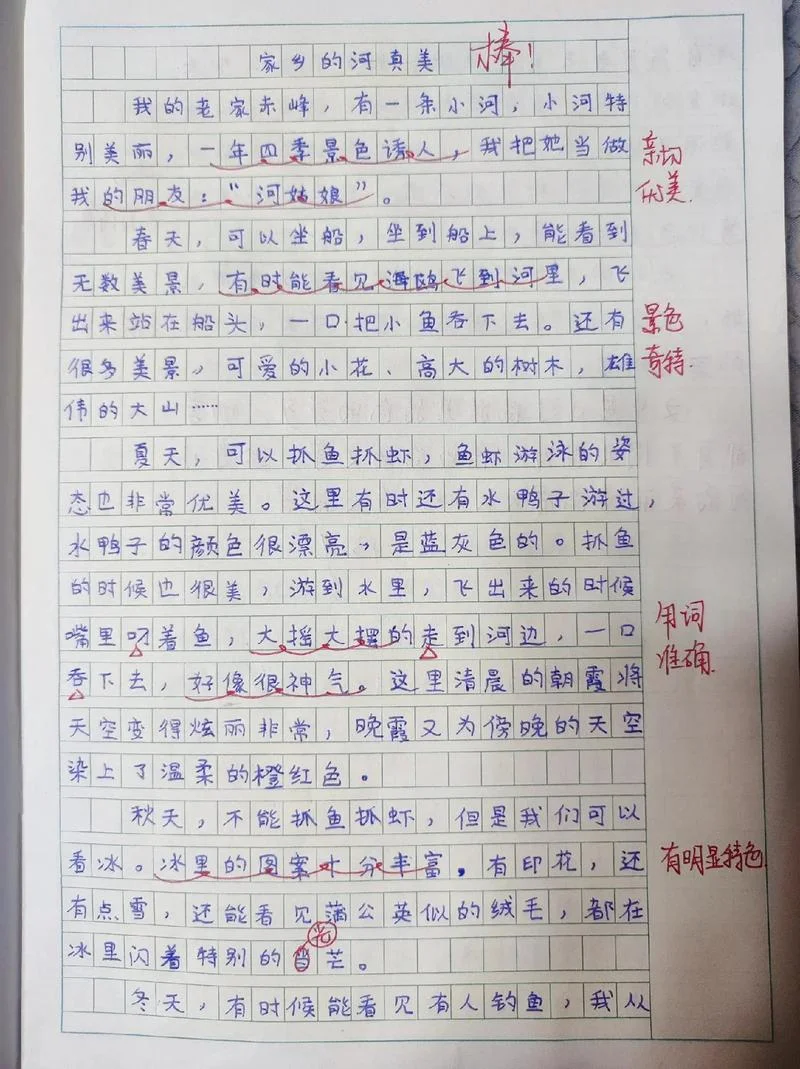 家乡的河真美 棒!
我的老家赤峰，有一条小河，小河特
别美丽，一年四季景色诱人，我把她当做 亲切
我的朋友：“河姑娘”。 优美.
春天，可以坐船，坐到船上，能看到
无数美景，有时能看见海鸥飞到河里，飞
出来站在船头，一口把小鱼吞下去。还有 景色
很多美景，可爱的小花、高大的树木，雄 奇特.
伟的大山……
夏天，可以抓鱼抓虾，鱼虾游泳的姿
态也非常优美。这里有时还有水鸭子游过，
水鸭子的颜色很漂亮，是蓝灰色的。抓鱼
的时候也很美，游到水里，飞出来的时候 用词
嘴里叼着鱼，大摇大摆的走到河边，一口 准确.
吞下去，好像很神气。这里清晨的朝霞将
天空变得炫丽非常，晚霞又为傍晚的天空
染上了温柔的橙红色。
秋天，不能抓鱼抓虾，但是我们可以
看冰。冰里的图案十分丰富，有印花，还 有明显特色.
有点雪，还能看见蒲公英似的绒毛，都在
光
冰里闪着特别的芒。
冬天，有时候能看见有人钓鱼，我从